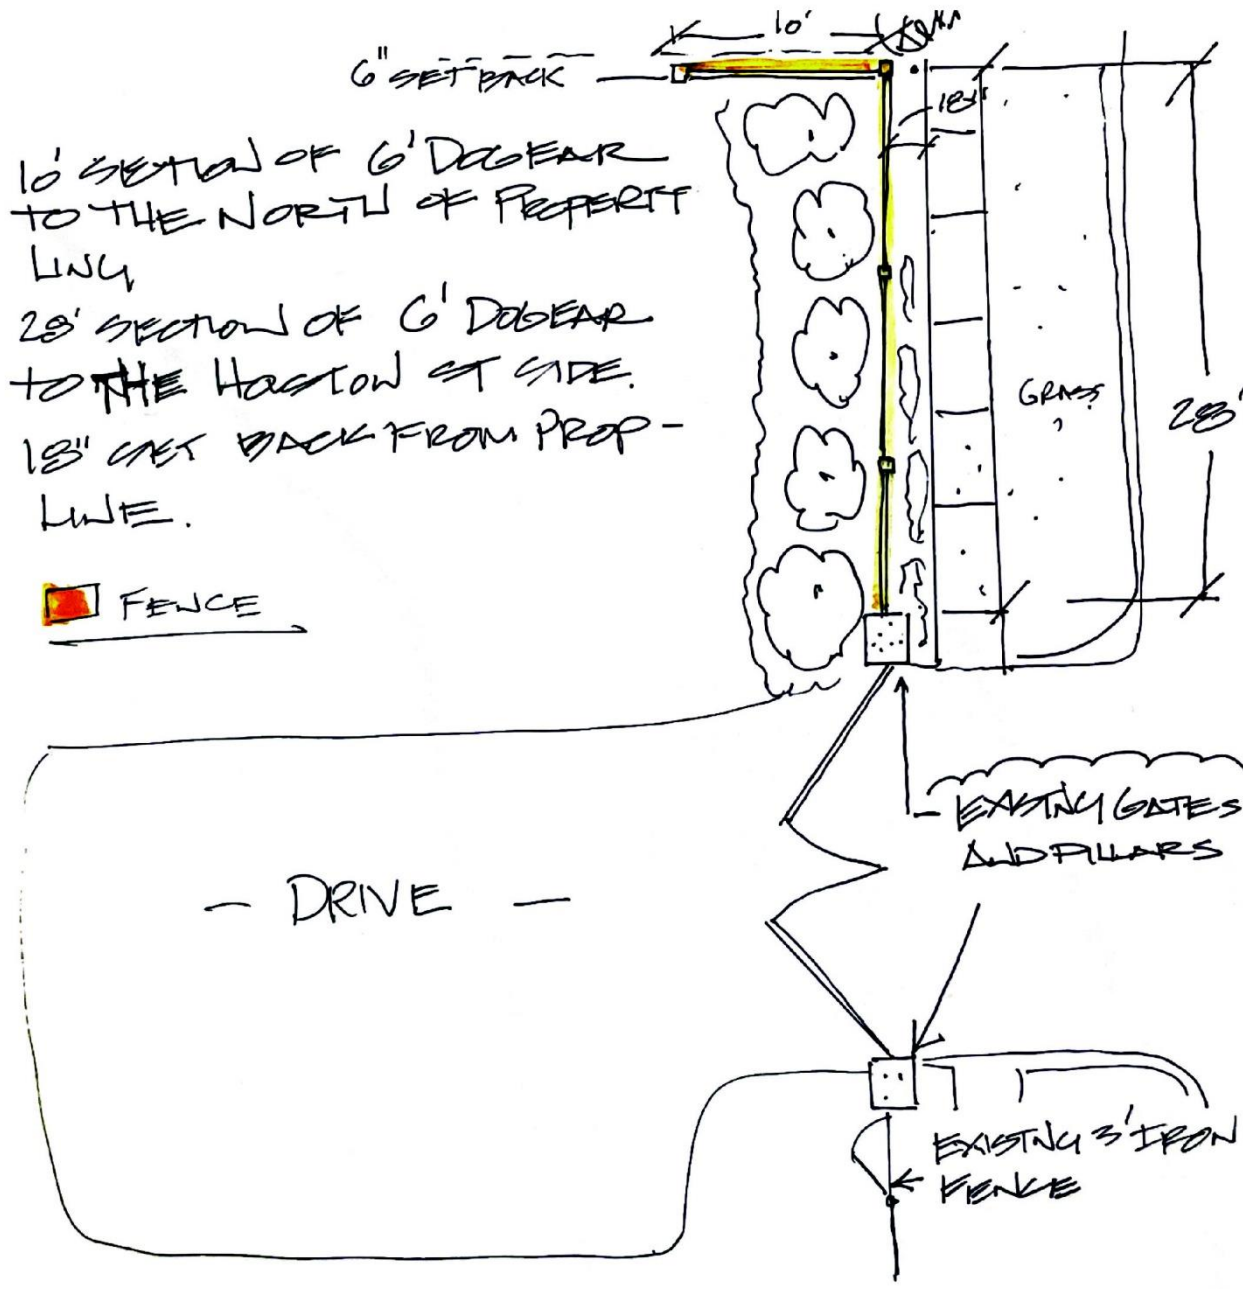 10'
6" SET BACK
18"
10' SECTION OF 6' DOGEAR
TO THE NORTH OF PROPERTY
LINE
28' SECTION OF 6' DOGEAR
TO THE HOSTON ST SIDE.
18" SET BACK FROM PROP-
LINE.
GRASS
28'
FENCE
EXISTING GATES
AND PILLARS
- DRIVE -
EXISTING 3' IRON
FENCE